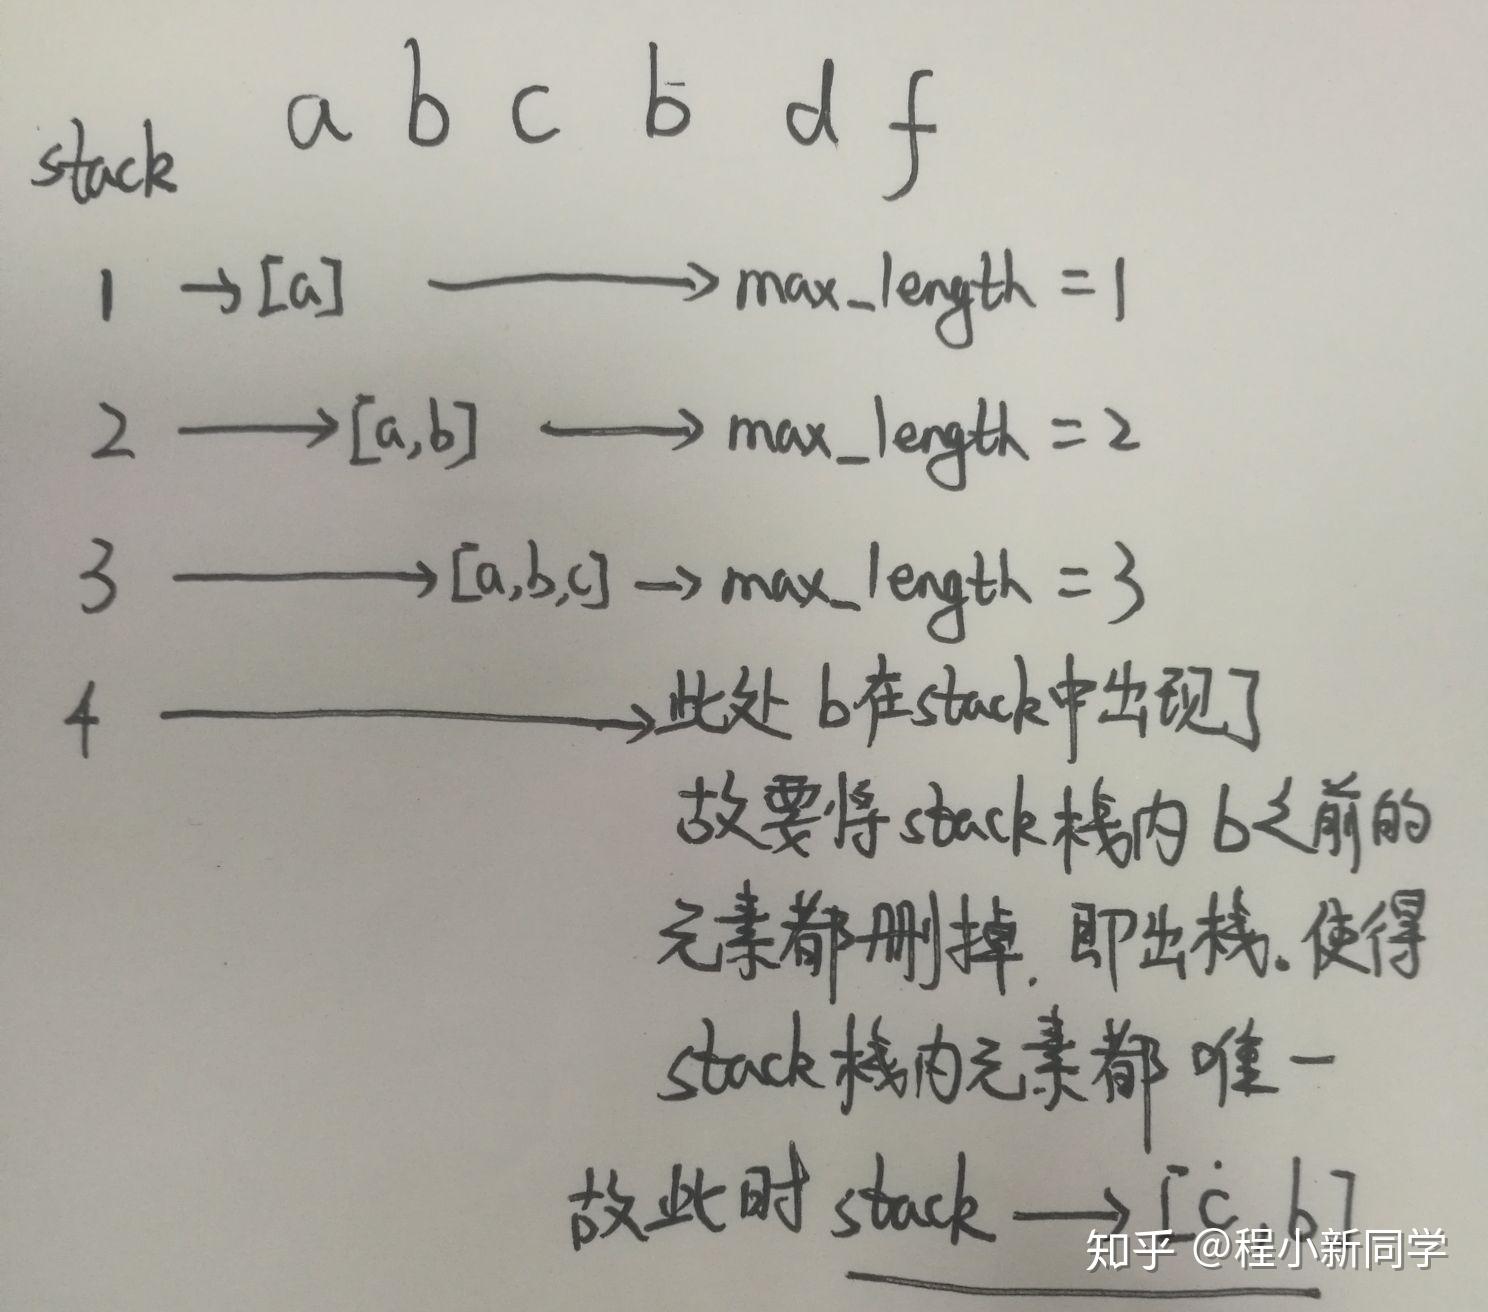 a b c b d f
stack
1 → [a] → max_length = 1
2 → [a,b] → max_length = 2
3 → [a,b,c] → max_length = 3
4 → 此处 b在stack中出现了
故要将stack栈内 b之前的
元素都删掉. 即出栈. 使得
stack栈内元素都 唯一
故此时 stack → [c,b]
知乎 @程小新同学